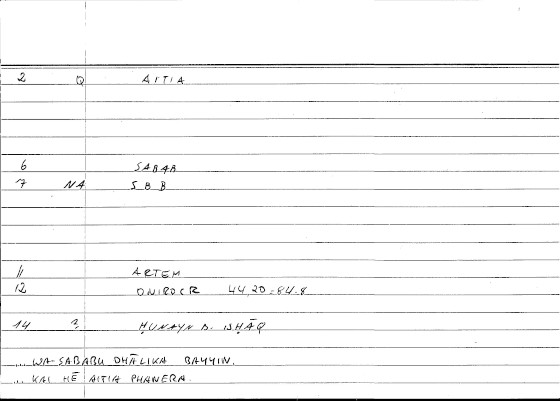 2 Q AITIA
6 SABAB
7 NA SBB
11 ARTEM
12 ONIROCR 44,20=84.8
14 ? ḤUNAYN B. ISḤĀQ
... WA-SABABU DHĀLIKA BAYYIN.
... KAI HĒ AITIA PHANERA.